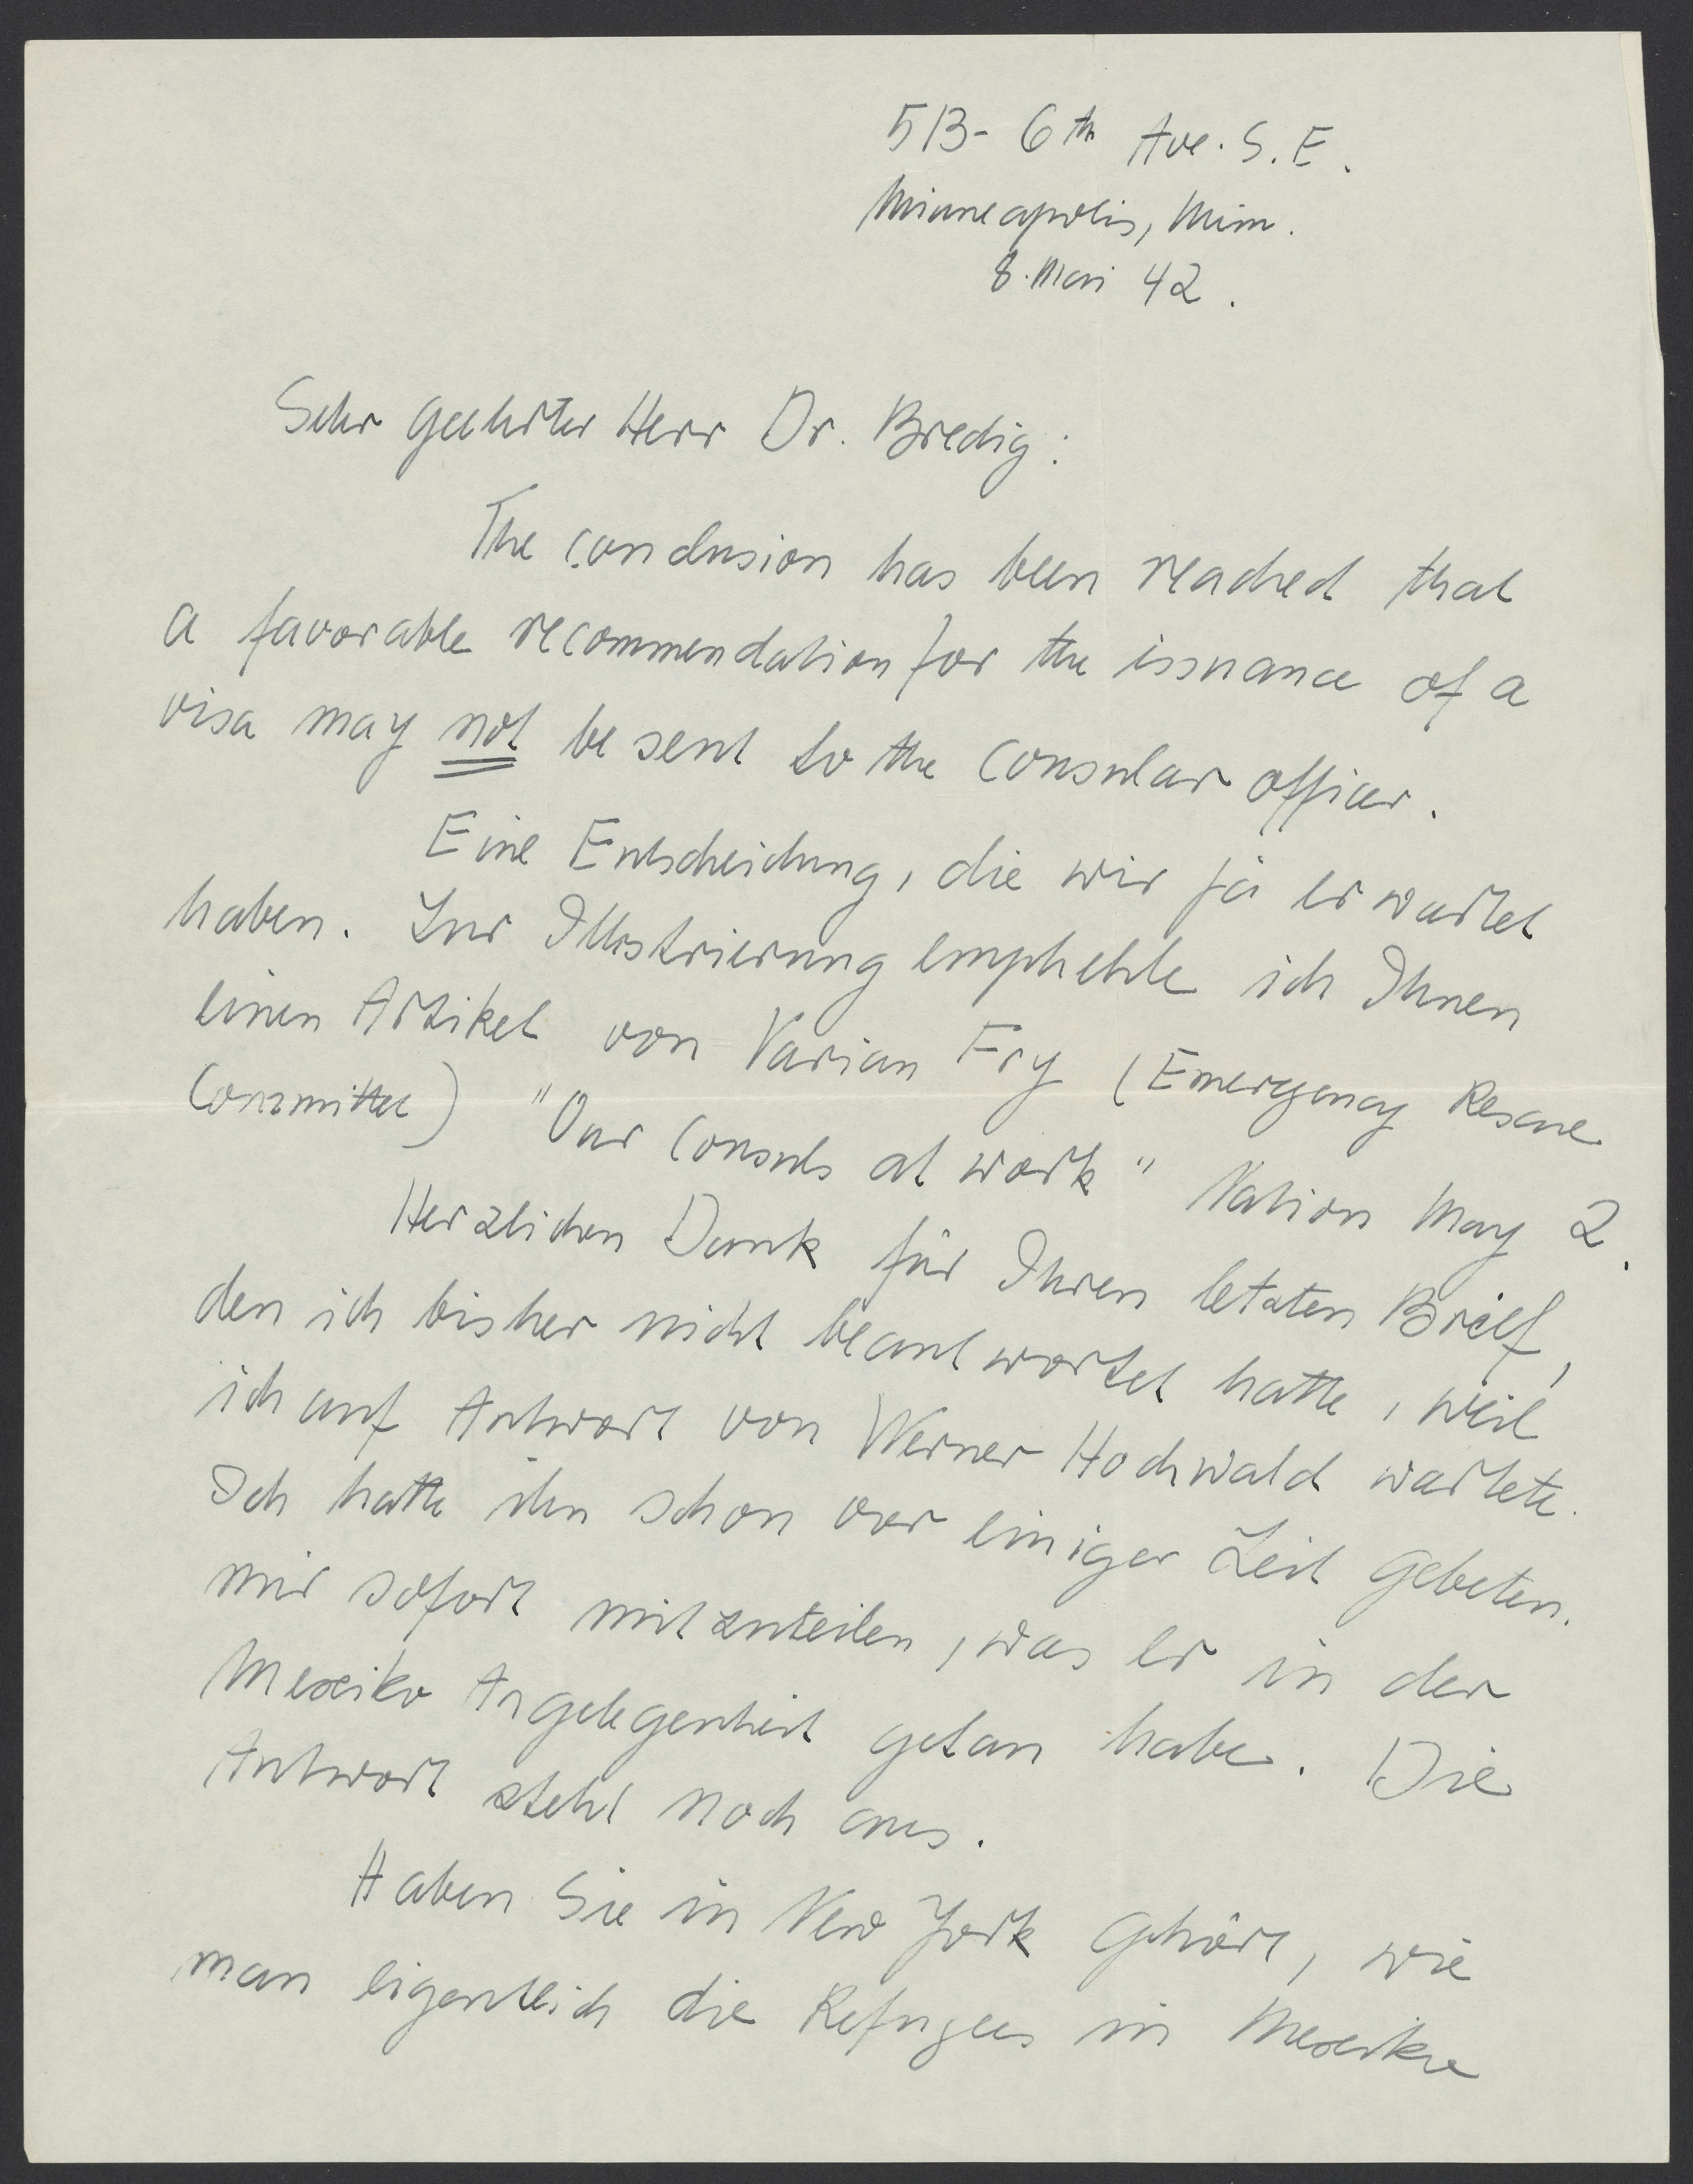 513 - 6th Ave. S. E.
Minneapolis, Minn.
8. Mai 42.
Sehr geehrter Herr Dr. Bredig:
The conclusion has been reached that
a favorable recommendation for the issuance of a
visa may not be sent to the consular officer.
Eine Entscheidung, die wir ja erwartet
haben. Zur Illustrierung emphehle ich Ihnen
einen Artikel von Varian Fry (Emergency Rescue
Committee) "Our Consuls at work" Nation May 2.
Herzlichen Dank für Ihren letzten Brief,
den ich bisher nicht beantwortet hatte, weil
ich auf Antwort von Werner Hochwald wartete.
Ich hatte ihn schon vor einiger Zeit gebeten,
mir sofort mitzuteilen, was er in der
Mexiko Angelegenheit getan habe. Die
Antwort steht noch aus.
Haben Sie in New York gehört, wie
man eigentlich die Refugees in Mexiko